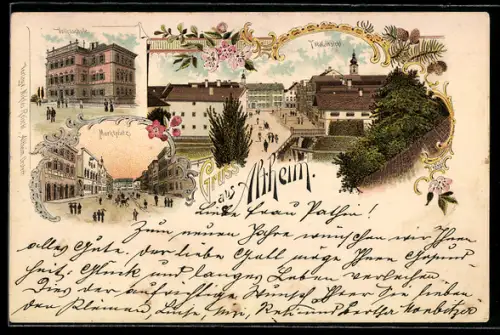 Marktplatz
Gruss
aus
Altheim.
Liebe Frau Pathin!
Zum neuen Jahre wünschen wir Ihnen
alles Gute, der liebe Gott möge Ihnen Gesund-
heit, Glück und langes Leben verleihen
Dies der aufrichtige Wunsch Ihrer Sie lieben
den Kleinen, und Bertha